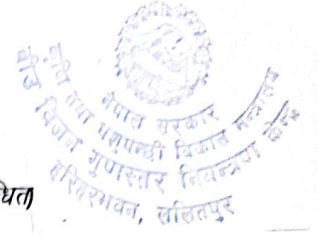 नेपाल सरकार
कृषि तथा पशुपन्छी विकास मन्त्रालय
बीउ विजन गुणस्तर नियन्त्रण केन्द्र
हरिहरभवन, ललितपुर
धित)